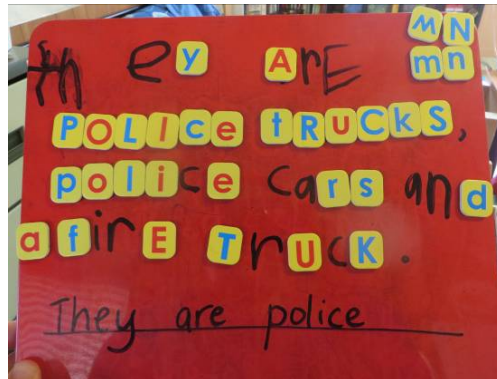 They ArE MN mn
POLIce tRUCKS,
police cars and
a firE TrUcK.
They are police